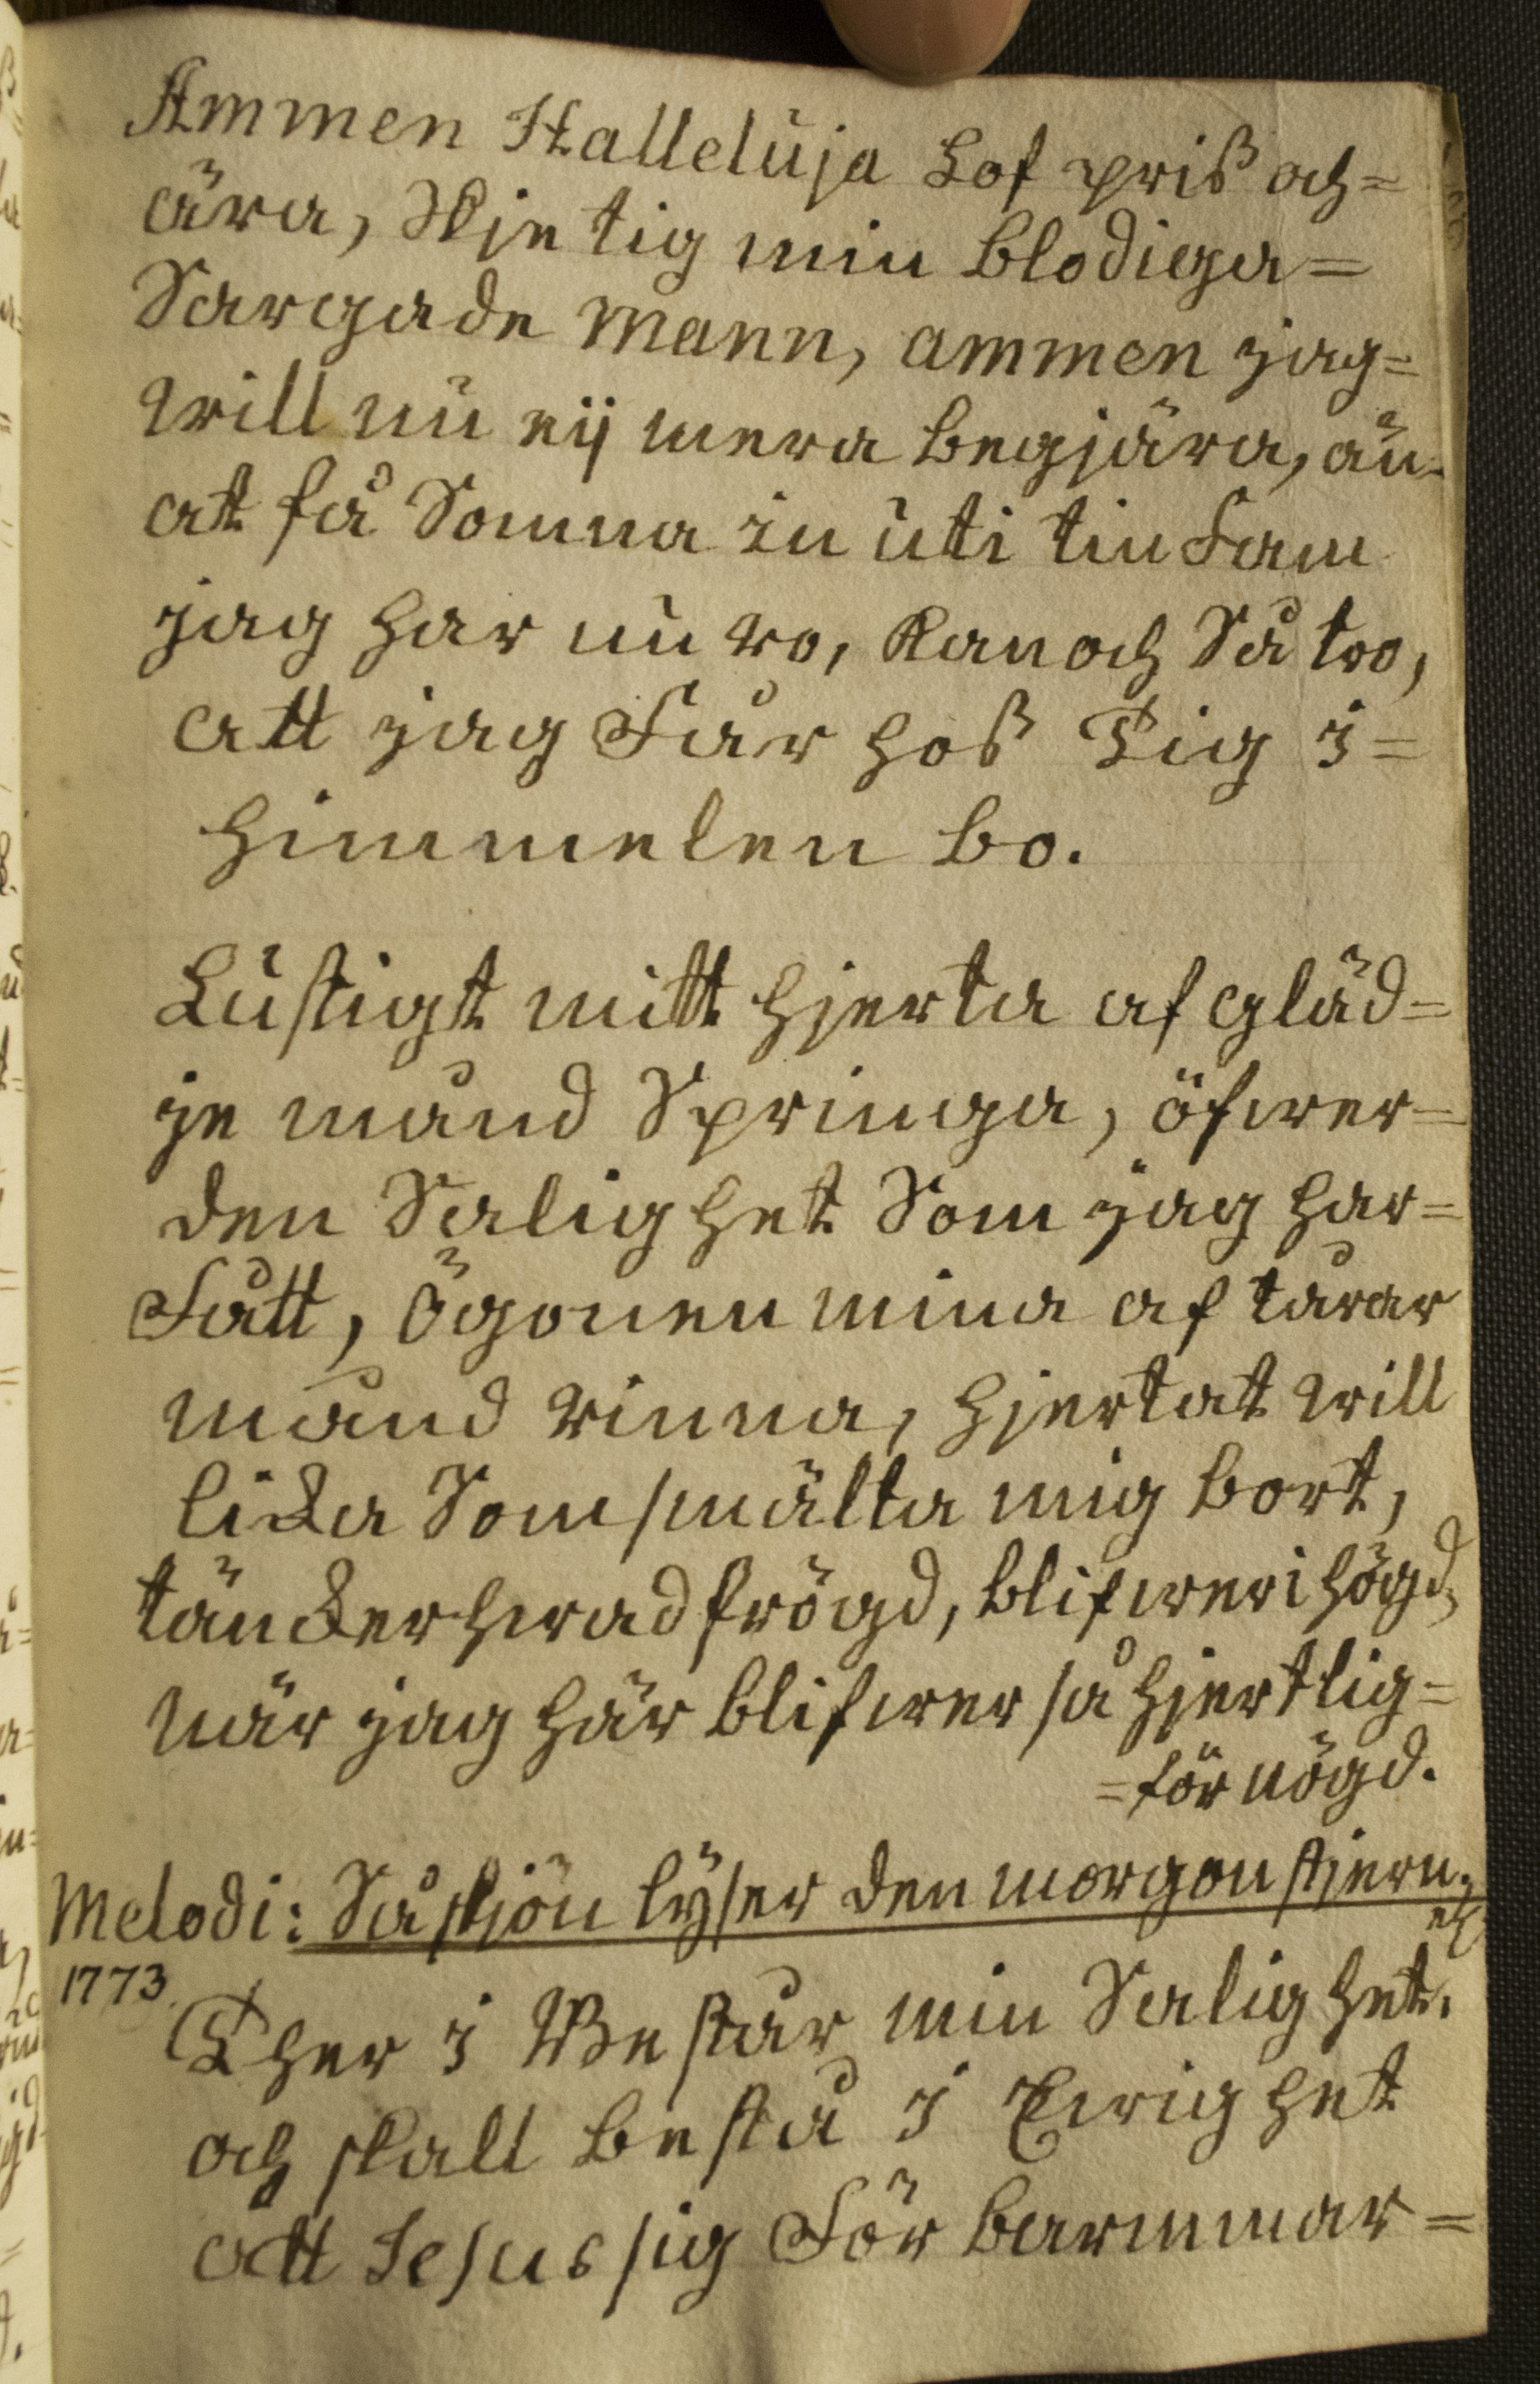 Ammen Halleluja Lof priß och=
ära, Skje tig min blodiga=
Sargade Mann, ammen jag=
will nu eij mera begjära, än
at få Somna in uti tin Fam
jag har nu ro, Kan och Så tro,
att jag Får hoß Tig i=
himmelen bo.
Lustigt mitt hjerta af gläd=
je månd Springa, öfwer=
den Salighet Som jag har=
Fått, Ögonen mina af tårar
månd rinna, hjertat will
lika Som smälta mig bort,
täncker hwad frögd, blifwer i högd,
när jag här blifwer så hjertlig=
=för nögd.
Melodi: Så skjön lÿser den morgon stjern; etc
1773. Ther i Består min Salighet.
och skall bestå i Ewighet
att Jesus sig För barmmar=